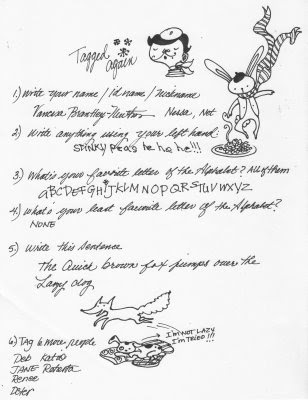 Tagged
again
1.) Write your name / id name / nickname
Vanessa Brantley-Newton Nessa, Net
2) Write anything using your left hand:
STINKY Feas te he he!!!
3) What's your favorite letter of the Alphabet? All of them
aBCDEFGHIJKLMNOPQRSTUVWXYZ
4) What's your least favorite letter of the Alphabet?
NONE
5) Write this sentence
The Quick brown fox jumps over the
Lazy dog
I'M NOT LAZY
I'm TRIED!!!
6) Tag 6 more people
Deb
JANE
Renee